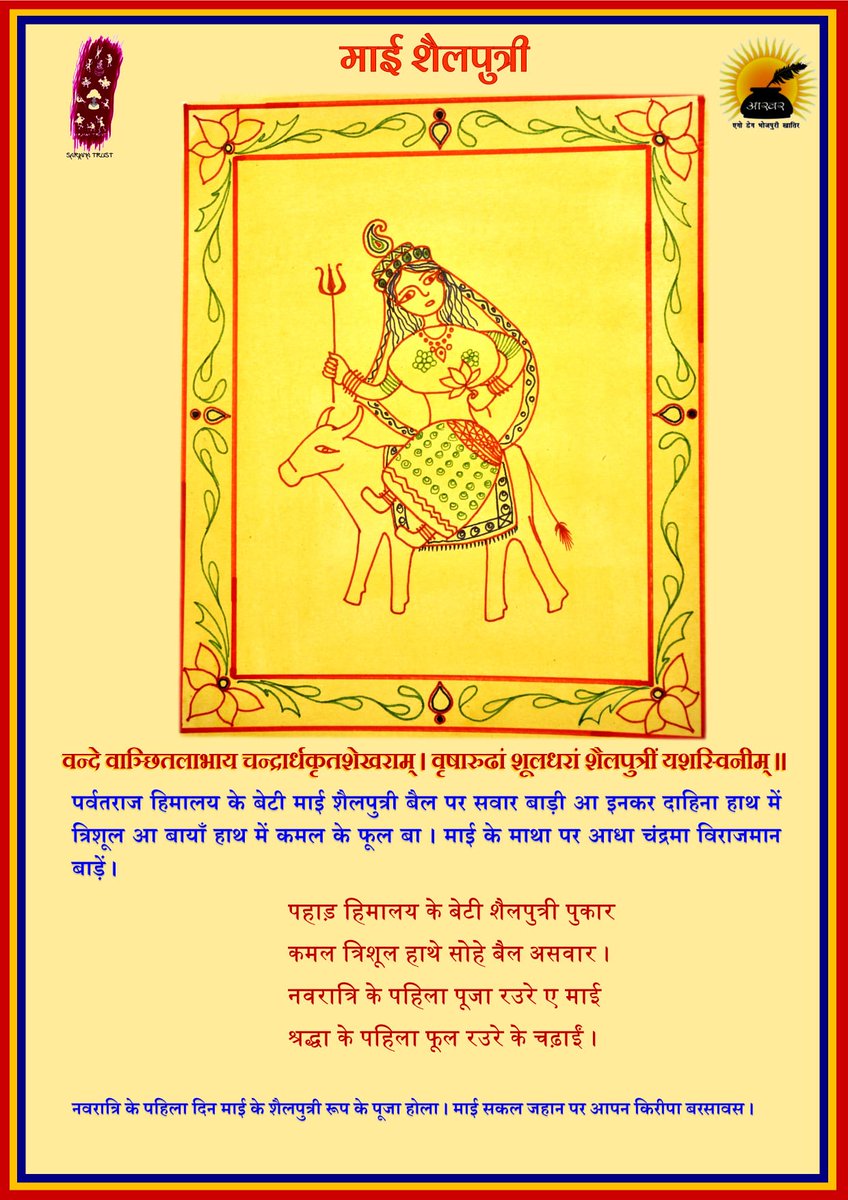 माई शैलपुत्री
SARJANA TRUST
आखर
एगो डेग भोजपुरी खातिर
वन्दे वाञ्छितलाभाय चन्द्रार्धकृतशेखराम्। वृषारुढां शूलधरां शैलपुत्रीं यशस्विनीम्॥
पर्वतराज हिमालय के बेटी माई शैलपुत्री बैल पर सवार बाड़ी आ इनकर दाहिना हाथ में
त्रिशूल आ बायाँ हाथ में कमल के फूल बा। माई के माथा पर आधा चंद्रमा विराजमान
बाड़ें।
पहाड़ हिमालय के बेटी शैलपुत्री पुकार
कमल त्रिशूल हाथे सोहे बैल असवार।
नवरात्रि के पहिला पूजा रउरे ए माई
श्रद्धा के पहिला फूल रउरे के चढ़ाईं।
नवरात्रि के पहिला दिन माई के शैलपुत्री रूप के पूजा होला। माई सकल जहान पर आपन किरीपा बरसावस।